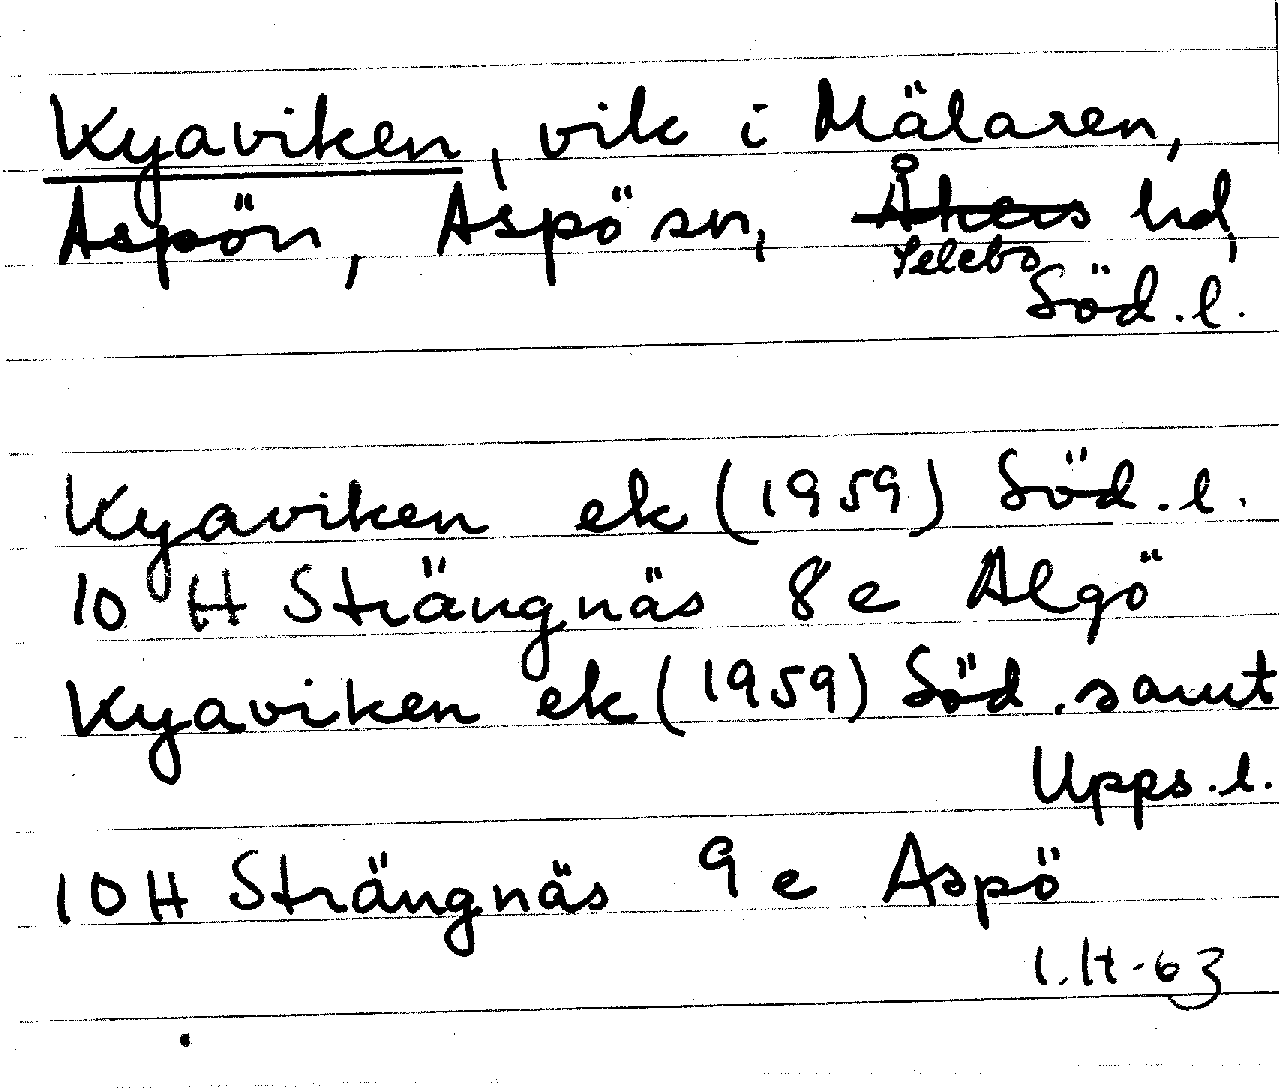 Kyaviken, vik i Mälaren,
Aspön, Aspö sn, Åkers hd,
Selebo
Söd.l.
Kyaviken ek (1959) Söd.l.
10 H Strängnäs 8e Algö
Kyaviken ek (1959) Söd. samt
Upps.l.
10H Strängnäs 9e Aspö
I.H-63